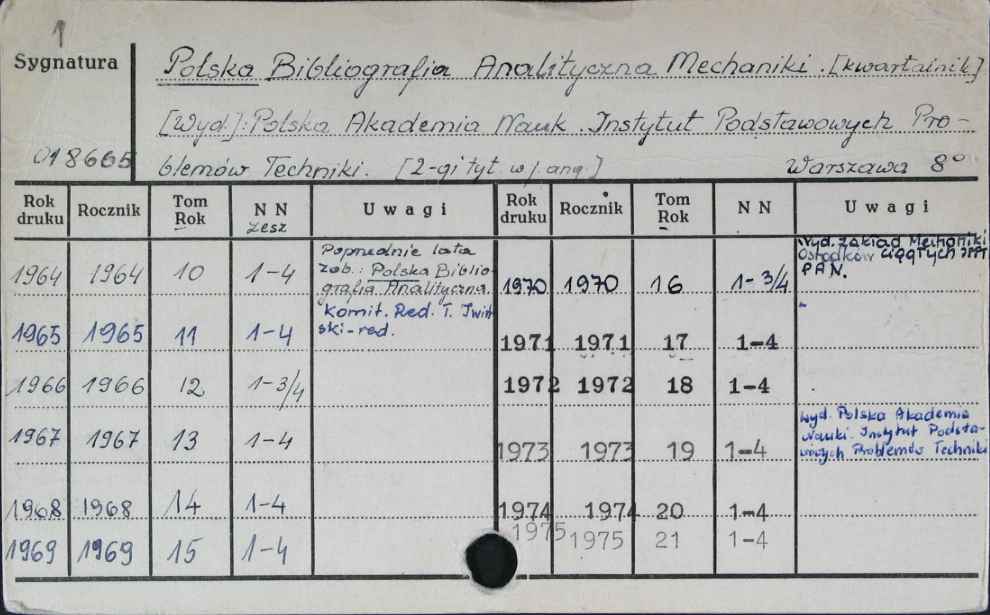 1
Sygnatura
Polska Bibliografia Analityczna Mechaniki. [kwartalnik]
[Wyd.]: Polska Akademia Nauk. Instytut Podstawowych Pro-
018665
blemów Techniki. [2-gi tyt. w j. ang.] Warszawa 8°
Rok druku Rocznik Tom Rok N N zesz Uwagi Rok druku Rocznik Tom Rok N N Uwagi
1964 1964 10 1-4
Poprzednie lata
zob.: Polska Biblio-
grafia Analityczna.
Komit. Red. T. Iwiń-
ski-red.
1965 1965 11 1-4
1966 1966 12 1-3/4
1967 1967 13 1-4
1968 1968 14 1-4
1969 1969 15 1-4
1970 1970 16 1-3/4
Wyd. Zakład Mechaniki
Ośrodków Ciągłych IPPT
PAN.
1971 1971 17 1-4
1972 1972 18 1-4
1973 1973 19 1-4
Wyd. Polska Akademia
Nauki. Instytut Podsta-
wowych Problemów Techniki
1974 1974 20 1-4
1975 1975 21 1-4